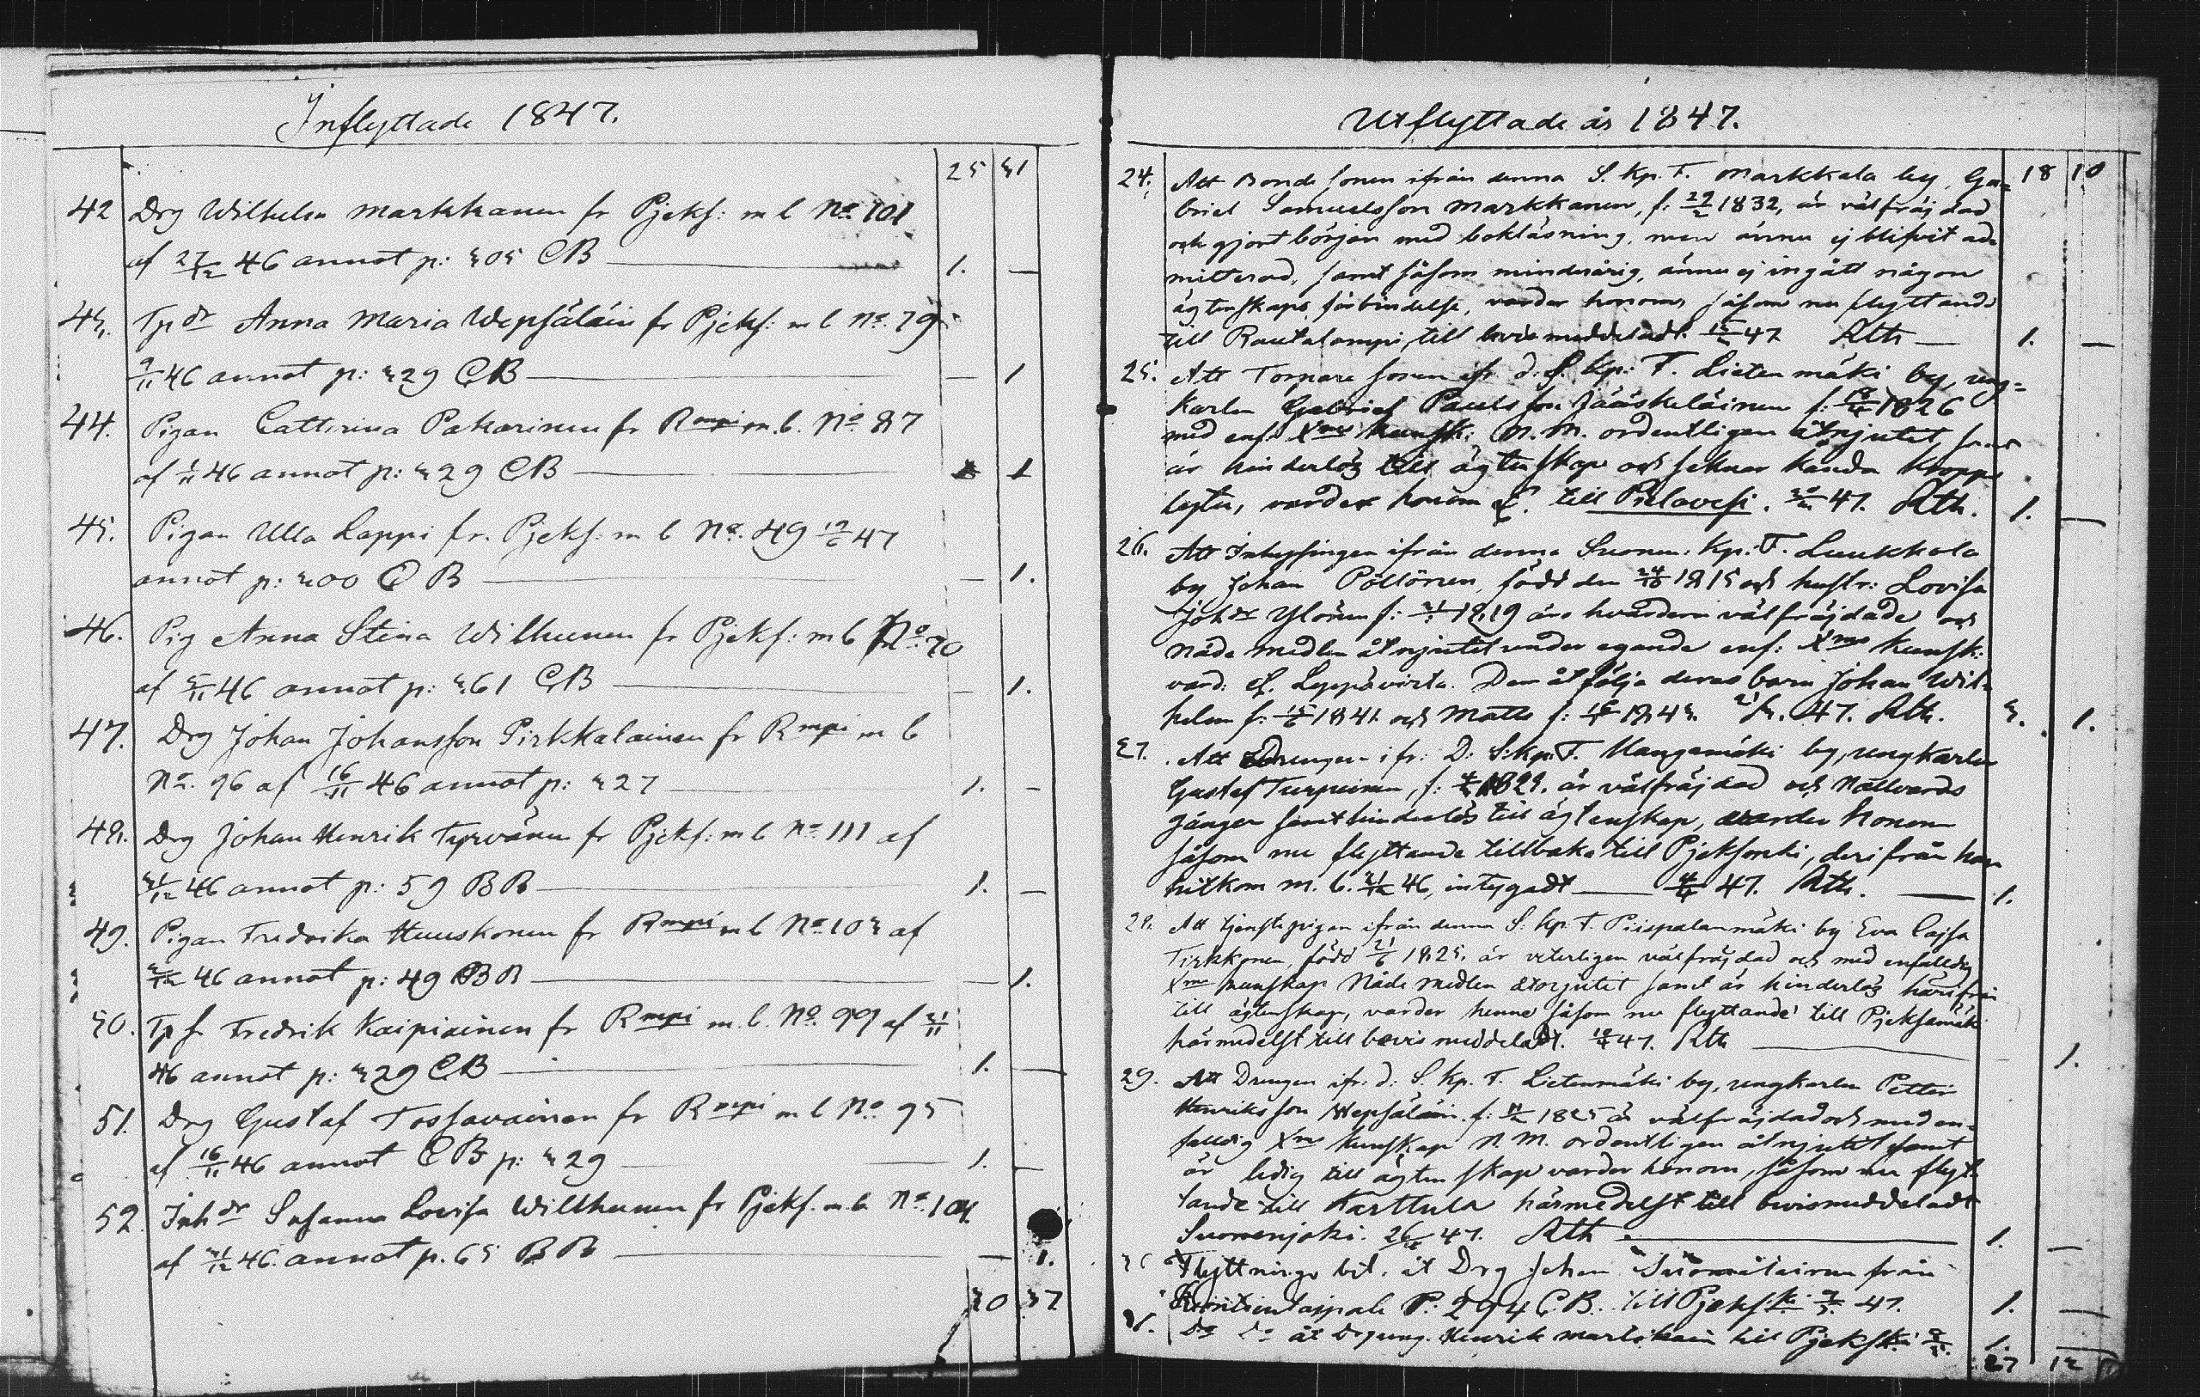 Inflyttade 1847.
25 31
42 Drg Wilhelm Markkanen fr Pjekſ: m b No 101
af 27/12 46 annot p: 305 CB 1. —
43. Tpdr Anna Maria Wepſäläin fr Pjekſ: m b No. 79
9/11 46 annot p: 329 CB — 1
44. Pigan Cattrina Pakarinen fr Rmpi m.b. No 87
af 1/11 46 annot p: 329 CB 1
45. Pigan Ulla Lappi fr. Pjekſ: m b No. 49 12/6 47
annot p: 300 CB — 1.
46. Pig Anna Stina Wilhunen fr Pjekſ: m b No. 70
af 5/11 46 annot p: 361 CB — 1.
47. Drg Johan Johansſon Pirkkalainen fr Rmpi m b
No. 96 af 16/11 46 annot p: 327 1. —
48. Drg Johan Henrik Tyrvänen fr Pjekſ: m b No 111 af
31/12 46 annot p: 59 BB 1. —
49. Pigan Fredrika Huuskonen fr Rmpi m b No 103 af
46 annot p: 49 BB — 1.
50. Tpſ Fredrik Kaipiainen fr Rmpi m.b. No. 99 af 21/11
46 annot p: 329 CB 1. —
51. Drg Gustaf Tosſavainen fr Rmpi m b No 95
af 16/11 46 annot CB p: 329 1. —
52. Inhdr Suſanna Loviſa Willhunen fr Pjekſ. m b No. 104.
af 31/12 46. annot p. 65 BB — 1.
30 37
Utflyttade år 1847.
24. Att Bonde ſonen ifrån denna S. Kp. F. Markkala by, Ga= 18 10
briel Samuelsſon Markkanen, f: 29/2 1832, är välfräjdad
och gjort början med bokläsning, men ännu ej blifvit ad=
mitterad, ſamt ſåſom minderårig, ännu ej ingått någon
ägtenſkaps förbindelſe, varder honom ſåſom nu flyttande
till Rautalampi, till bevis meddeladt. 47 Rth — 1. —
25. Att Torpare ſonen ifr. d. S. Kp: F. Lietenmäki by, ung=
karlen Gabriel Paulsſon Jääskeläinen f: 1826
med enf. Xms kunſk: N. M. ordentligen åtnjutet, ſamt
är hinderlös till ägtenſkap och ſaknar kända kropps
lyten, varder honom ſ. till Pielaveſi. 47. Rth. 1. —
26. Att Inhysſingen ifrån denna Suonen. Kp: F. Luukkola
by Johan Pöllönen, född den 24/10 1815 och huſtr: Loviſa
Johdr Ylönen f: 1819 äro hvardera välfräjdade och
nåde medlen åtnjutit under egande enf: Xms kunſk:
vard. ſ. Leppävirta. Der åtfölja deras barn Johan Wil=
helm f: 1841 och Matts f: 1843. 47. Rth. 3. 1.
27. Att Drengen ifr: D. S: Kp. F. Hangamäki by, ungkarlen
Gustaf Turpeinen, f: 1829. är välfräjdad och Nattvards
gänger ſamt hinderlös till ägtenſkap, varder honom
ſåſom nu flyttande tillbaka till Pjekſemki, derifrån han
hitkom m. b. 46, intygadt — 47. Rth. — 1.
28. Att tjenſtepigan ifrån denna S: Kp. F. Piispalanmäki by Eva Cajſa
Tirkkonen, född 21/6 1825. är veterligen välfräjdad och med enfalldig
Xms kunſkap Nåde medlen åtnjutit ſamt är hinderlös härifrån
till ägtenſkap, varder henne ſåſom nu flyttande till Pjekſämäki
härmedelſt till bevis meddeladt. 47. Rth — 1.
29. Att Drengen ifr: d: S. Kp. F. Lietenmäki by, ungkarlen Petter
Henriksſon Wepſäläin f: 1825 är välfräjdad och med en=
falldig Xms kunſkap N. M. ordentligen åtnjutit ſamt
är ledig till ägtenſkap varder honom, ſåſom nu flyt=
tande till Karttula härmedelſt till bevis meddeladt
Suonenjoki. 26/ 47. Rth — 1. —
30 Flyttnings bet. åt Drg Johan från
P: 294 CB. till Pjekſk 47. 1. —
31. Do Do åt Drgung. Henrik till Pjekſk: 1.
27 12